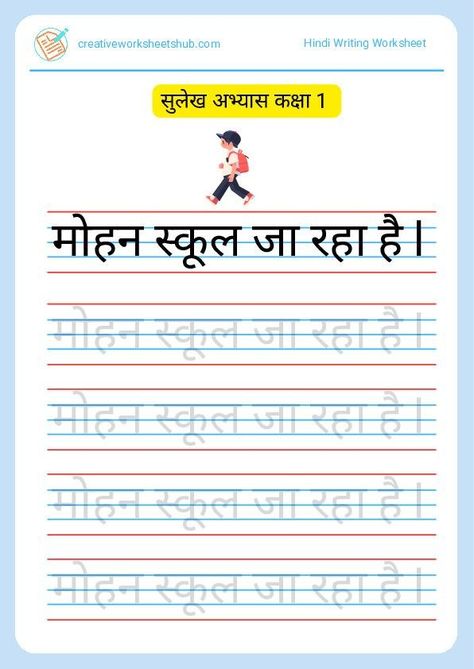 creativeworksheetshub.com
Hindi Writing Worksheet
सुलेख अभ्यास कक्षा 1
मोहन स्कूल जा रहा है l
मोहन स्कूल जा रहा है l
मोहन स्कूल जा रहा है l
मोहन स्कूल जा रहा है l
मोहन स्कूल जा रहा है l